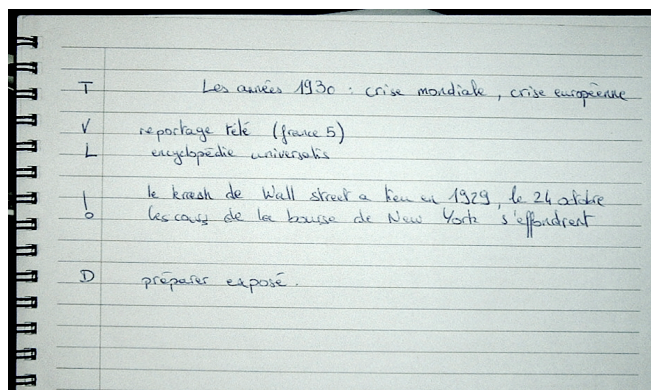 T Les années 1930 : crise mondiale, crise européenne
V reportage télé (france 5)
L encyclopédie universalis
! le krash de Wall street a lieu en 1929, le 24 octobre
les cours de la bourse de New York s'effondrent
D préparer exposé.